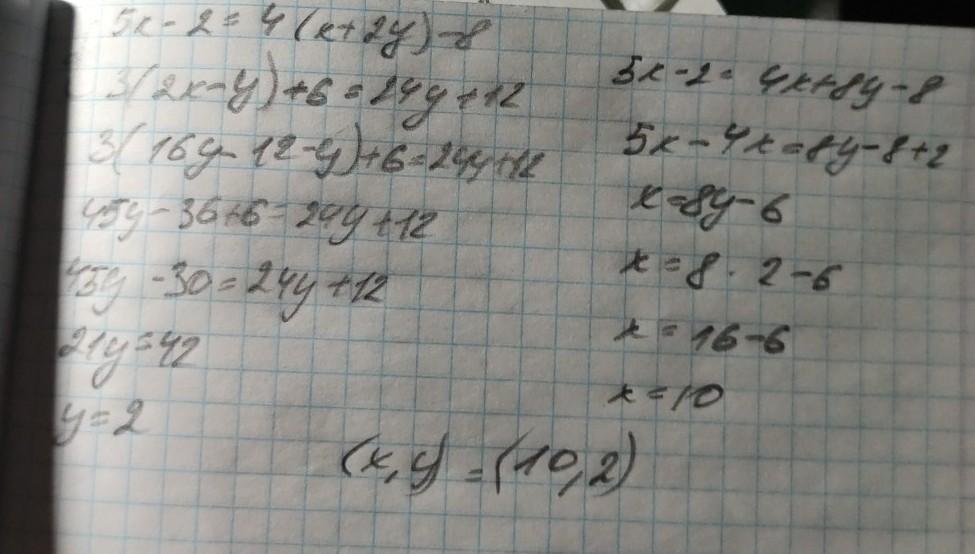 5x-2=4(x+2y)-8
3(2x-y)+6=24y+12
3(16y-12-y)+6=24y+12
45y-36+6=24y+12
45y-30=24y+12
21y=42
y=2
5x-2=4x+8y-8
5x-4x=8y-8+2
x=8y-6
x=8·2-6
x=16-6
x=10
(x,y)=(10,2)